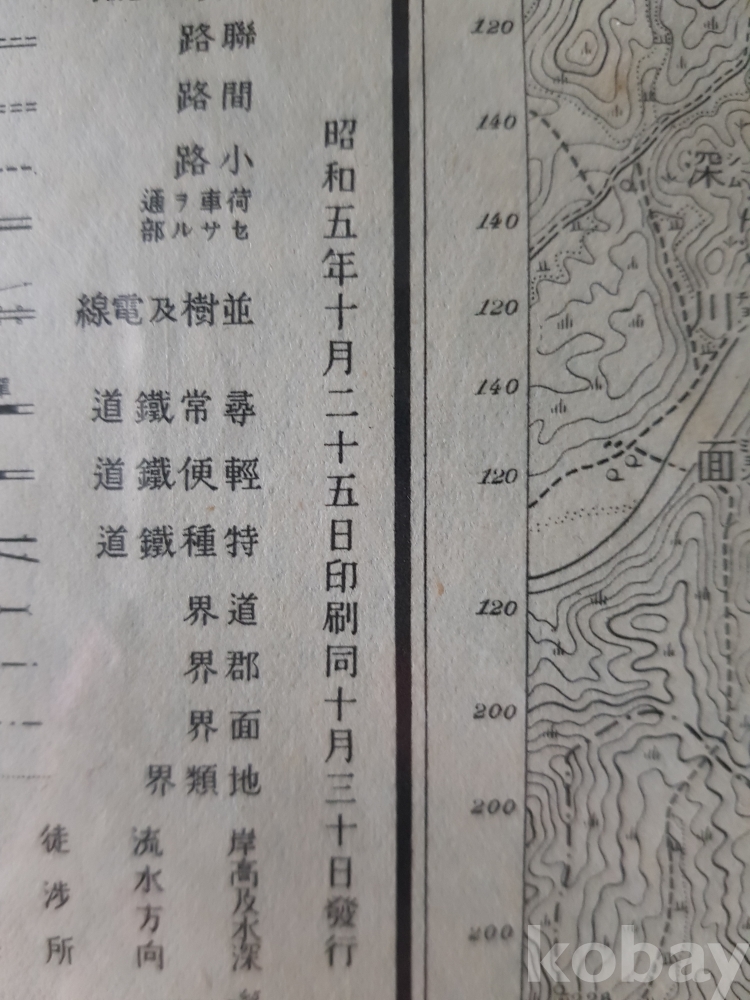 聯路
間路
小路
荷車ヲ通
セサル部
並樹及電線
尋常鐵道
輕便鐵道
特種鐵道
道界
郡界
面界
地類界
岸高及水深
流水方向
徒渉所
昭和五年十月二十五日印刷同十月三十日發行
120
140
140
120
140
120
120
200
200
200
深
川
面
kobay